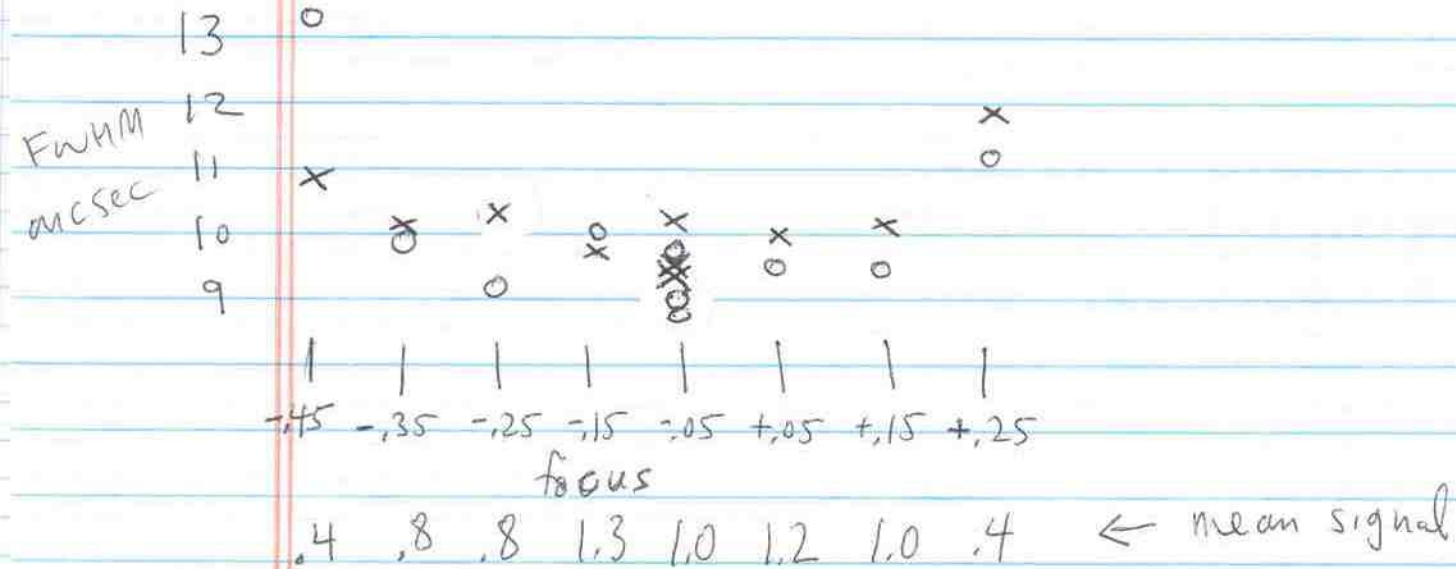 13
12
FWHM
11
arcsec
10
9
-.45 -.35 -.25 -.15 -.05 +.05 +.15 +.25
focus
.4 .8 .8 1.3 1.0 1.2 1.0 .4 ← mean signal